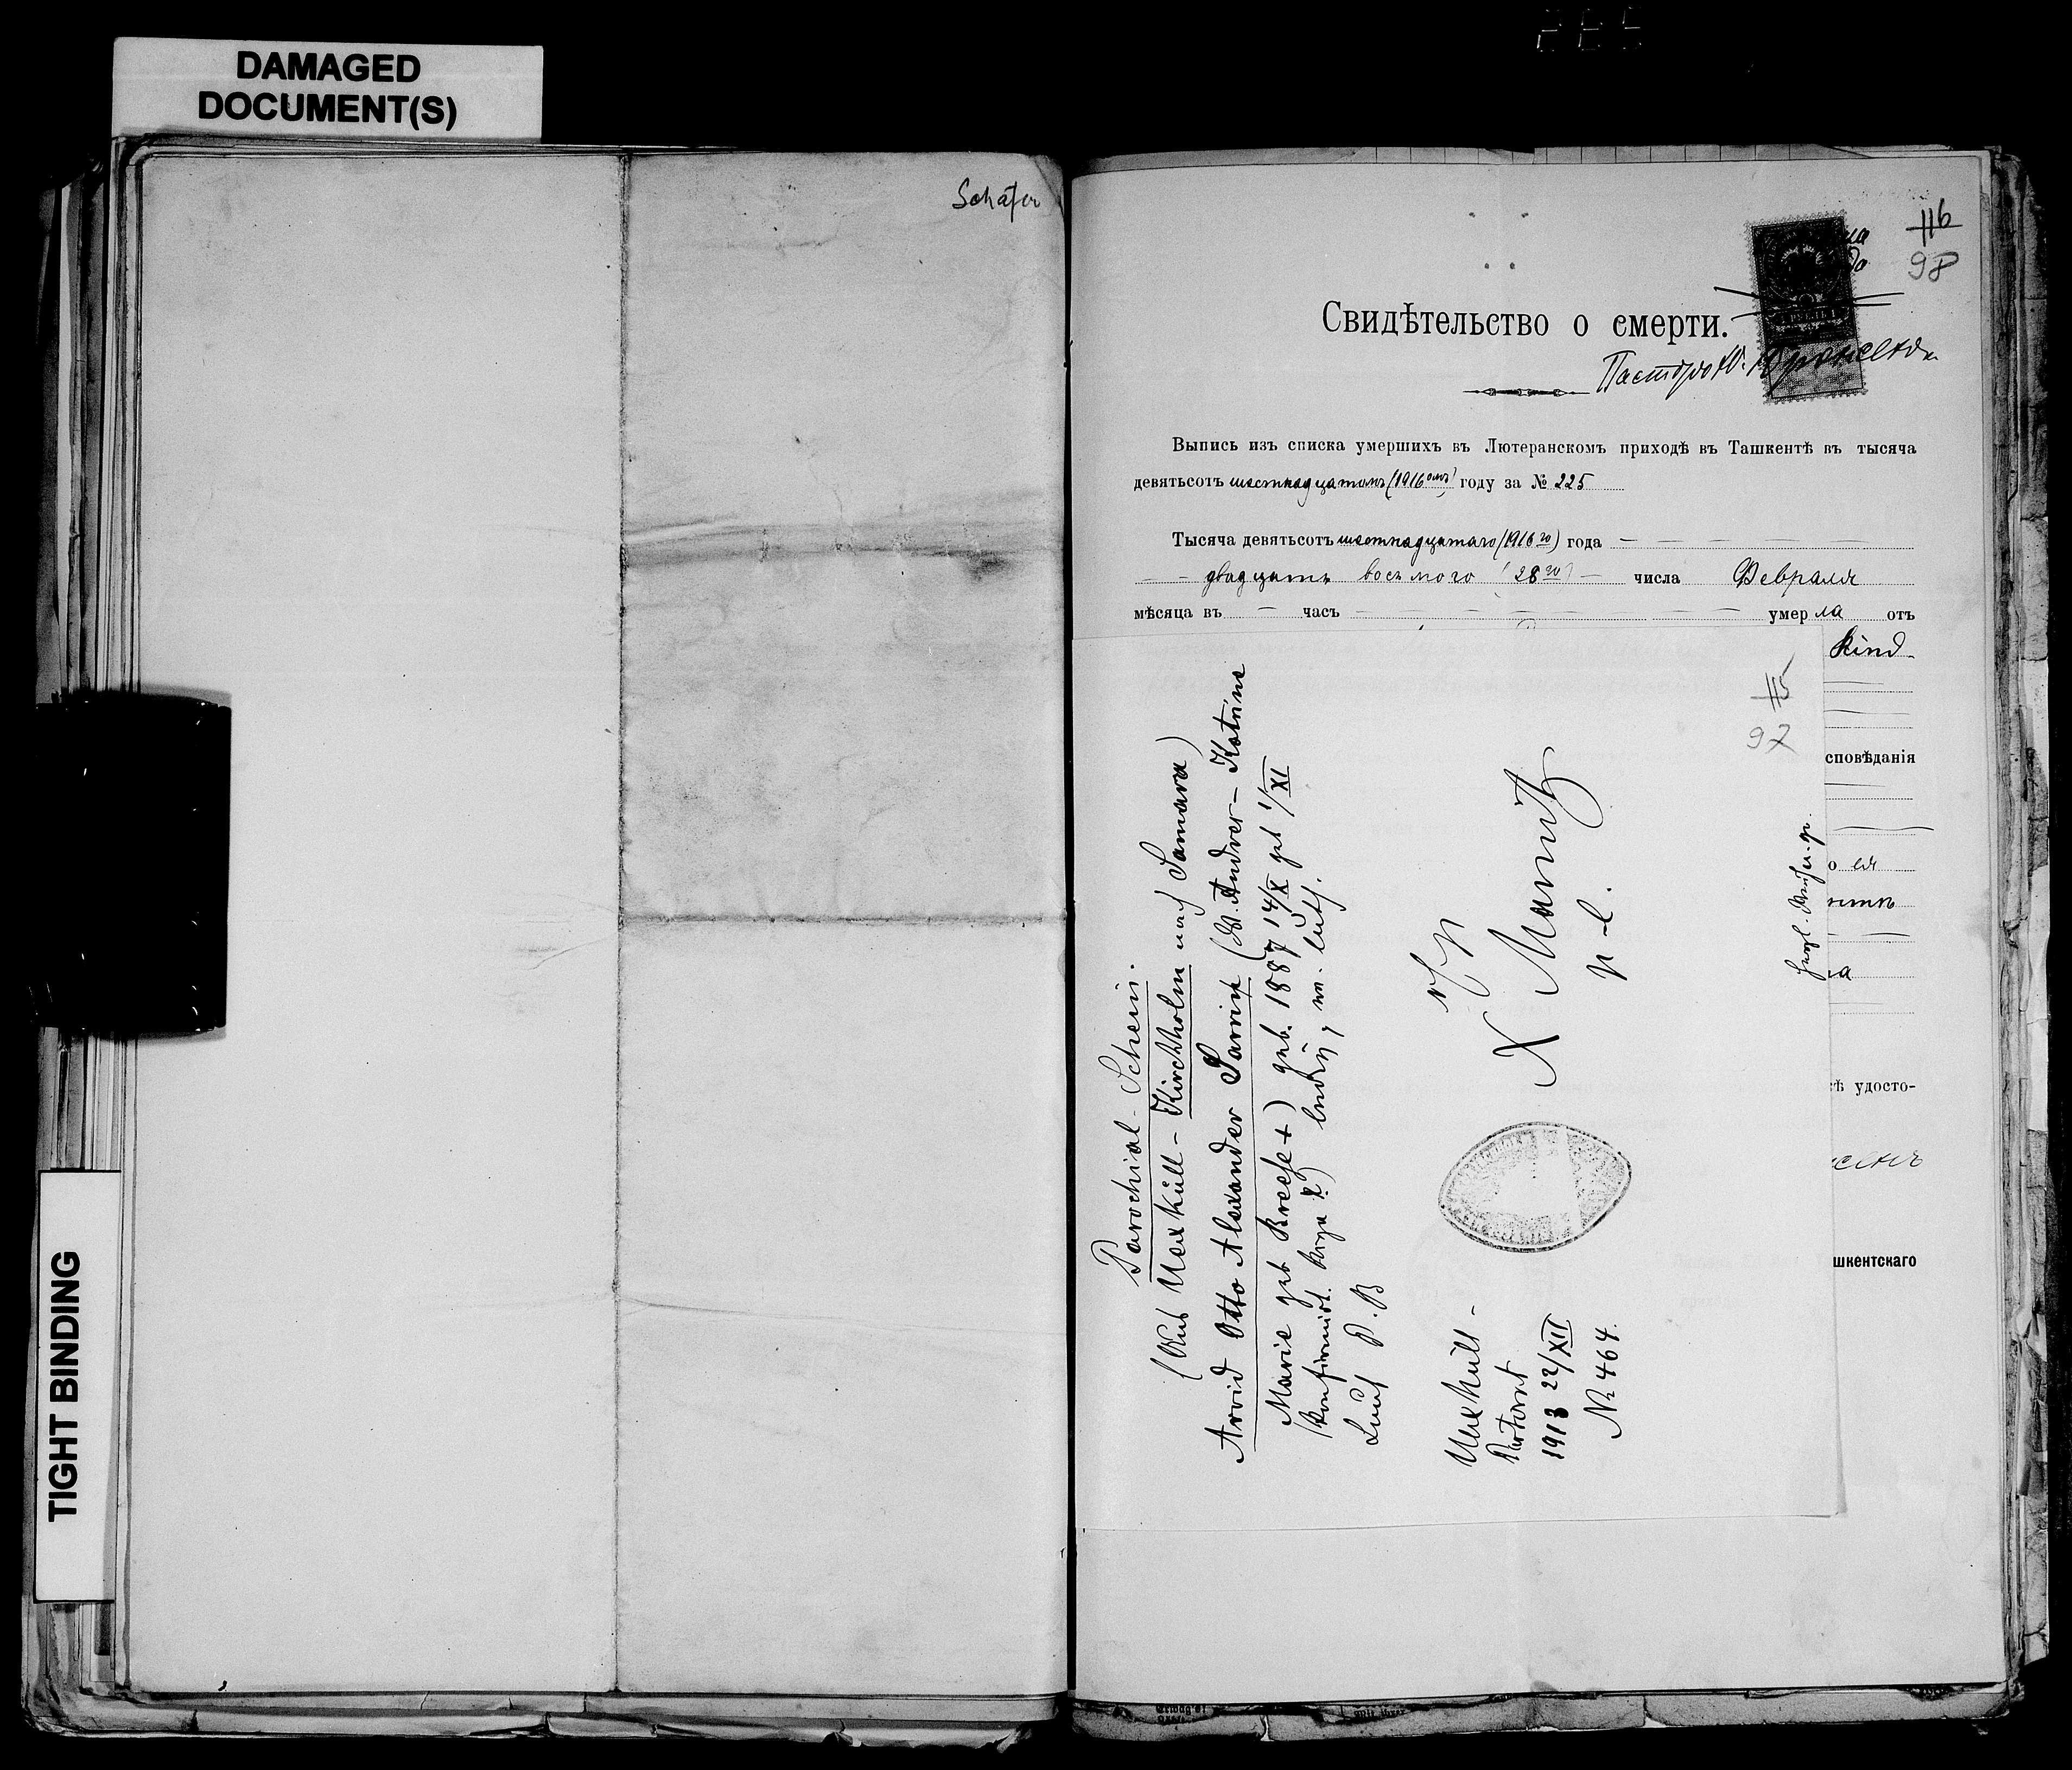 DAMAGED
DOCUMENT(S)
TIGHT BINDING
Schäfer
116
98
Свидѣтельство о смерти.
Пасторъ Ю. Юргенсенъ
Выпись изъ списка умершихъ въ Лютеранскомъ приходѣ въ Ташкентѣ въ тысяча
девятьсотъ шестнадцатомъ (1916омъ) году за № 225
Тысяча девятьсотъ шестнадцатаго (1916го) года
двадцать восьмого (28го) числа Февраля
мѣсяца въ — часъ — умерла отъ
Kind
сповѣданія
о ея
на
ѣ удосто-
шкентскаго
115
97
Parochial-Schein.
(Aus Uexküll-Kirchholm nach Samara)
Arvid Otto Alexander Sarrin (W. Andrei - Katrine
Marie geb Breese +) geb. 1887 14/X get 1/XI
(Konfirmirt. Riga) ledig, ev. luth.
Laut P. B
Uexküll-
Pastorat
1913 22/XII
№ 464.
X Marnitz